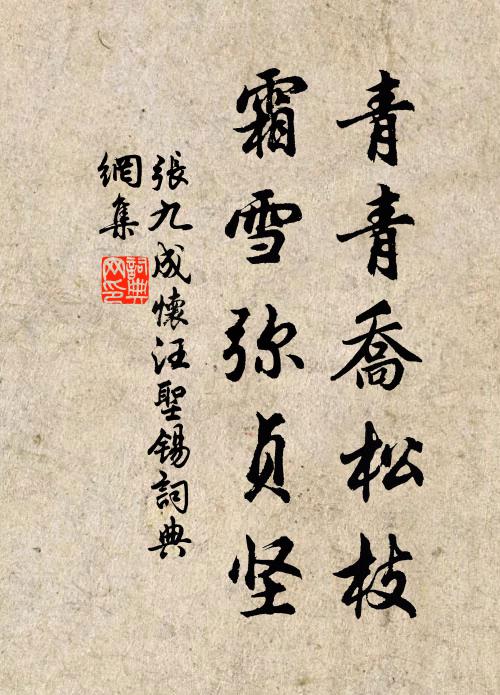 青青喬松枝
霜雪弥貞坚
張九成懷汪聖錫詞典
網集
詞典
网印